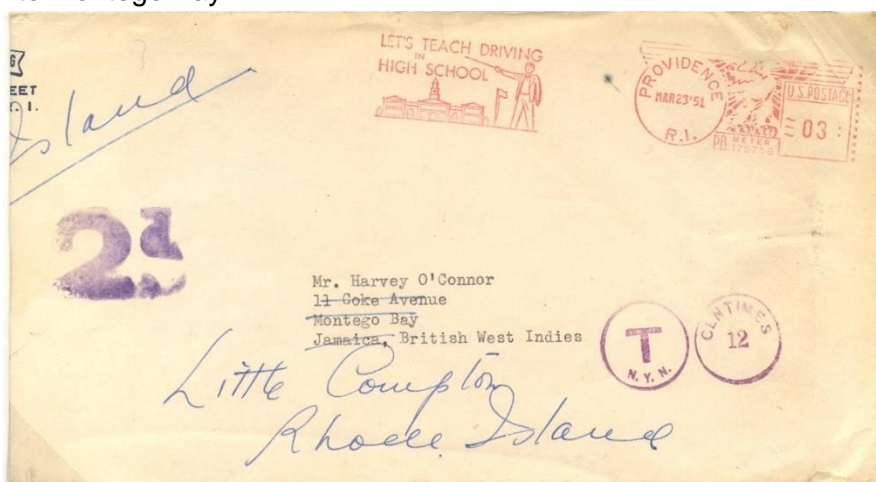 LET'S TEACH DRIVING
IN
HIGH SCHOOL
PROVIDENCE
MAR23'51
R.I.
U.S. POSTAGE
03
PB METER
EET
. I.
Island
2d
Mr. Harvey O'Connor
11 Coke Avenue
Montego Bay
Jamaica, British West Indies
T
N.Y.N.
CENTIMES
12
Little Compton
Rhode Island